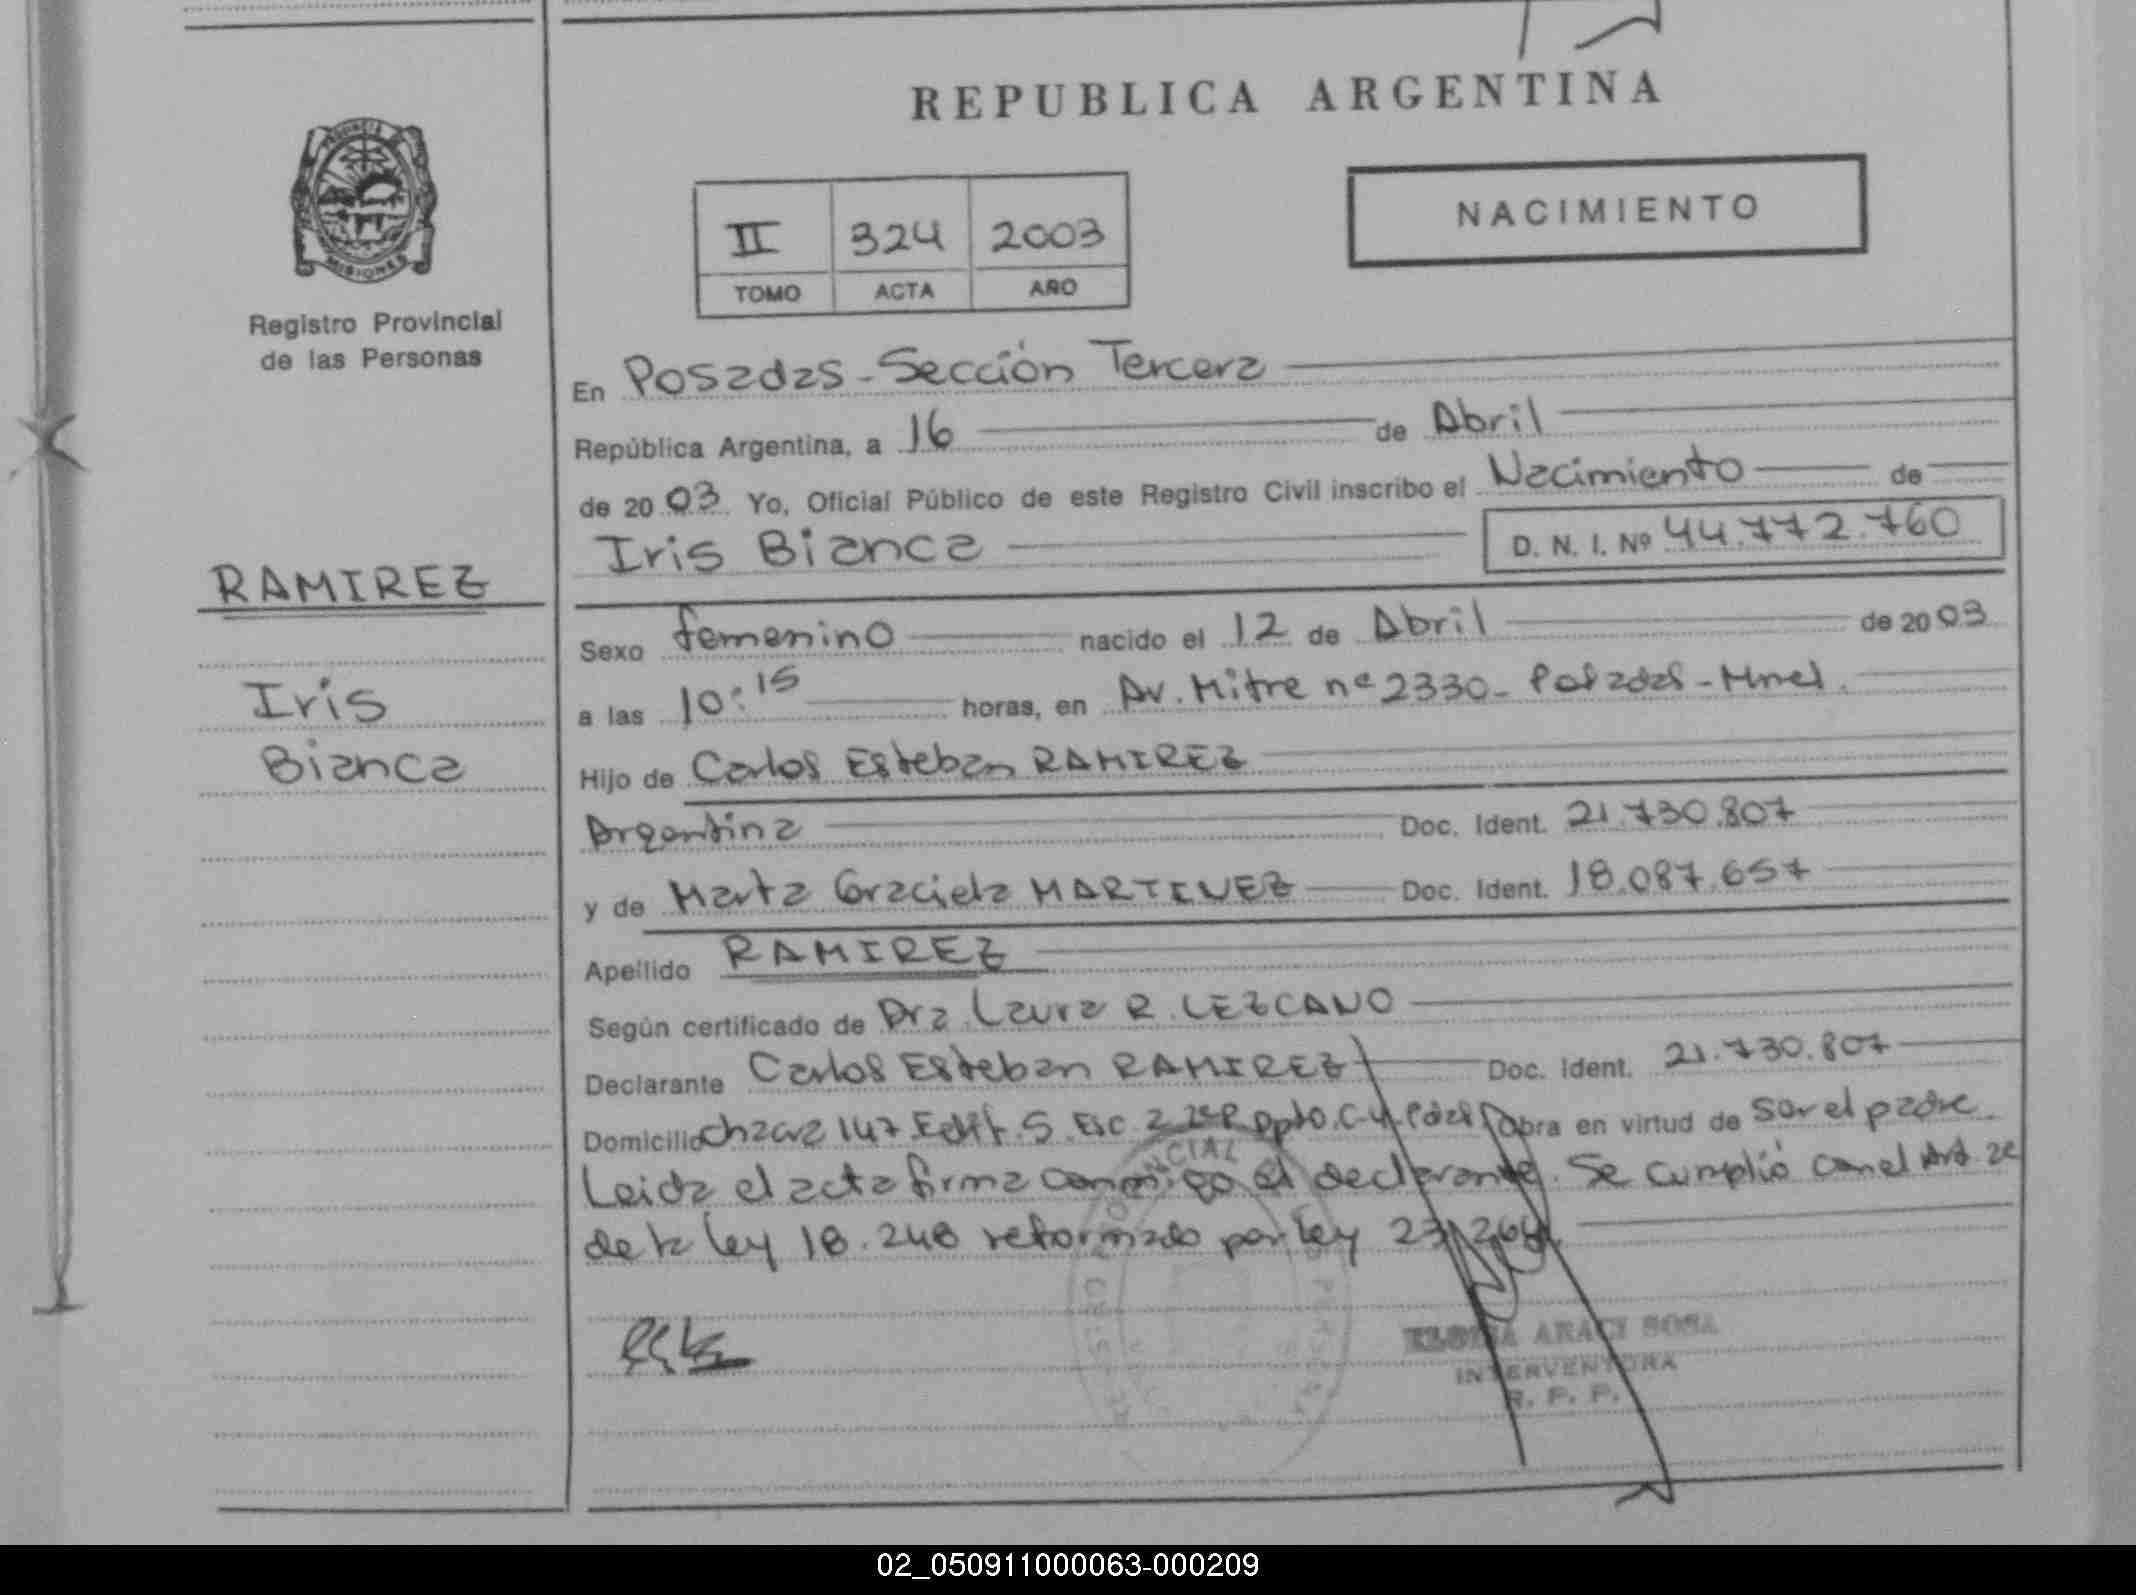 REPUBLICA ARGENTINA
PROVINCIA
MISIONES
Registro Provincial
de las Personas
NACIMIENTO
II 324 2003
TOMO ACTA AÑO
En Posadas - Sección Tercera
República Argentina, a 16 de Abril
de 2003. Yo, Oficial Público de este Registro Civil inscribo el Nacimiento de
Iris Bianca D. N. I. Nº 44.772.760
RAMIREZ
Iris
Bianca
Sexo femenino nacido el 12 de Abril de 2003
a las 10:15 horas, en Av. Mitre nº 2330 - Posadas - Mnes.
Hijo de Carlos Esteban RAMIREZ
Argentina Doc. Ident. 21.730.807
y de Marta Graciela MARTINEZ Doc. Ident. 18.087.657
Apellido RAMIREZ
Según certificado de Dra Laura R. LEZCANO
Declarante Carlos Esteban RAMIREZ Doc. Ident. 21.730.807
Domicilio Chacra 147 Edif. 5 Esc 2 Dpto. C Obra en virtud de ser el padre.
Leída el acta firma conmigo el declarante. Se cumplió con el Art 2º
de la ley 18.248 reformado por ley 23.264
ARACI SOSA
INTERVENTORA
R. P. P.
02_050911000063-000209